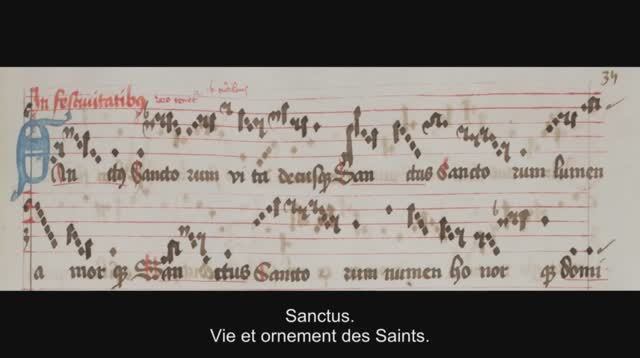 34
In festiuitatibꝰ
San ctꝰ Sancto rum vi ta decusqꝫ San ctus Sancto rum lumen
a mor qꝫ San ctus Sancto rum numen ho nor qꝫ domi
Sanctus.
Vie et ornement des Saints.